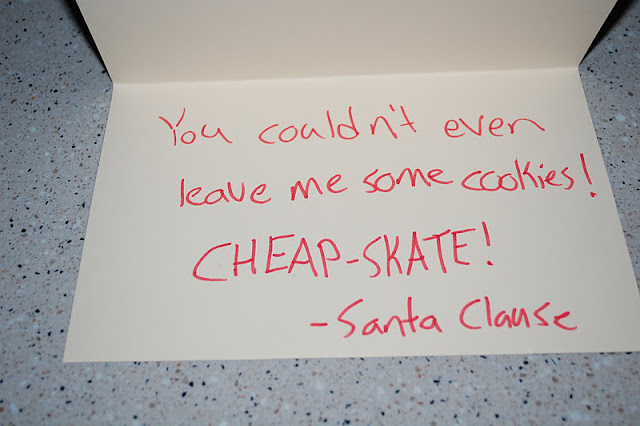 You couldn't even
leave me some cookies!
CHEAP-SKATE!
-Santa Clause